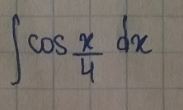 ∫ cos x/4 dx